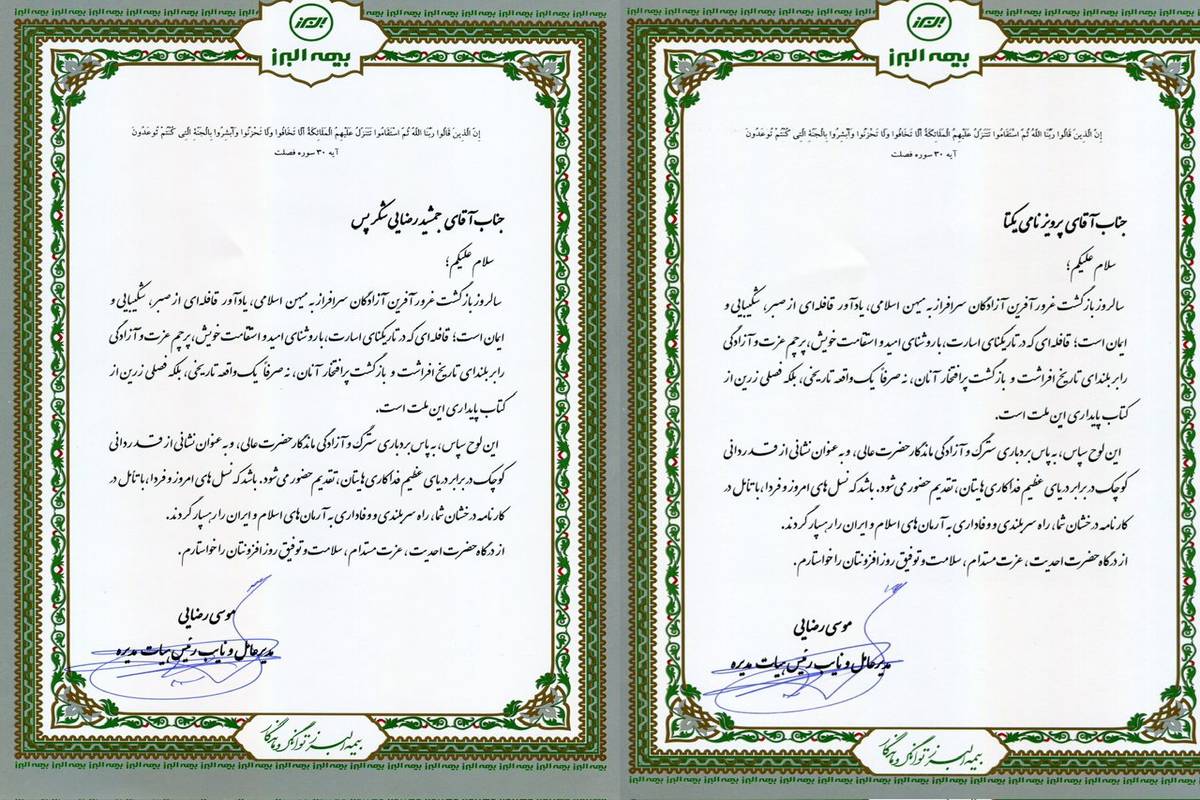 البرز
بیمه البرز
إِنَّ الَّذِینَ قَالُوا رَبُّنَا اللَّهُ ثُمَّ اسْتَقَامُوا تَتَنَزَّلُ عَلَیْهِمُ الْمَلَائِکَةُ أَلَّا تَخَافُوا وَلَا تَحْزَنُوا وَأَبْشِرُوا بِالْجَنَّةِ الَّتِی کُنْتُمْ تُوعَدُونَ
آیه ۳۰ سوره فصلت
جناب آقای جمشید رضایی شکرپس
سلام علیکم؛
سالروز بازگشت غرورآفرین آزادگان سرافراز به میهن اسلامی، یادآور قافله‌ای از صبر، شکیبایی و
ایمان است؛ قافله‌ای که در تاریکنای اسارت، با روشنای امید و استقامت خویش، پرچم عزت و آزادگی
را بر بلندای تاریخ افراشت و بازگشت پرافتخار آنان، نه صرفاً یک واقعه تاریخی، بلکه فصلی زرین از
کتاب پایداری این ملت است.
این لوح سپاس، به پاس بردباری سترگ و آزادگی ماندگار حضرت عالی، و به عنوان نشانی از قدردانی
کوچک در برابر دریای عظیم فداکاری هایتان، تقدیم حضور می‌شود. باشد که نسل های امروز و فردا، با تأمل در
کارنامه درخشان شما، راه سربلندی و وفاداری به آرمان های اسلام و ایران را رهسپار گردند.
از درگاه حضرت احدیت، عزت مستدام، سلامت و توفیق روزافزونتان را خواستارم.
موسی رضایی
مدیرعامل و نایب رئیس هیات مدیره
بیمه البرز توانگر و ماندگار
البرز
بیمه البرز
إِنَّ الَّذِینَ قَالُوا رَبُّنَا اللَّهُ ثُمَّ اسْتَقَامُوا تَتَنَزَّلُ عَلَیْهِمُ الْمَلَائِکَةُ أَلَّا تَخَافُوا وَلَا تَحْزَنُوا وَأَبْشِرُوا بِالْجَنَّةِ الَّتِی کُنْتُمْ تُوعَدُونَ
آیه ۳۰ سوره فصلت
جناب آقای پرویز نامی یکتا
سلام علیکم؛
سالروز بازگشت غرورآفرین آزادگان سرافراز به میهن اسلامی، یادآور قافله‌ای از صبر، شکیبایی و
ایمان است؛ قافله‌ای که در تاریکنای اسارت، با روشنای امید و استقامت خویش، پرچم عزت و آزادگی
را بر بلندای تاریخ افراشت و بازگشت پرافتخار آنان، نه صرفاً یک واقعه تاریخی، بلکه فصلی زرین از
کتاب پایداری این ملت است.
این لوح سپاس، به پاس بردباری سترگ و آزادگی ماندگار حضرت عالی، و به عنوان نشانی از قدردانی
کوچک در برابر دریای عظیم فداکاری هایتان، تقدیم حضور می‌شود. باشد که نسل های امروز و فردا، با تأمل در
کارنامه درخشان شما، راه سربلندی و وفاداری به آرمان های اسلام و ایران را رهسپار گردند.
از درگاه حضرت احدیت، عزت مستدام، سلامت و توفیق روزافزونتان را خواستارم.
موسی رضایی
مدیرعامل و نایب رئیس هیات مدیره
بیمه البرز توانگر و ماندگار